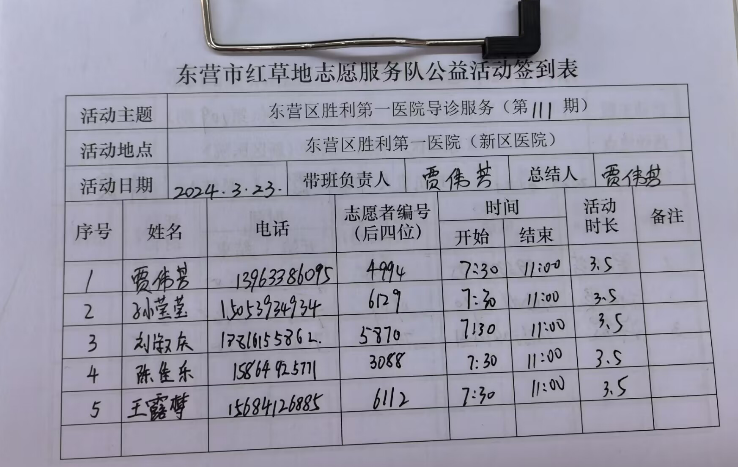 东营市红草地志愿服务队公益活动签到表
活动主题 东营区胜利第一医院导诊服务（第111期）
活动地点 东营区胜利第一医院（新区医院）
活动日期 2024.3.23. 带班负责人 贾伟芳 总结人 贾伟芳
序号 姓名 电话 志愿者编号（后四位） 时间 开始 结束 活动时长 备注
1 贾伟芳 13963386095 4994 7:30 11:00 3.5
2 孙莹莹 15053934934 6129 7:30 11:00 3.5
3 刘淑庆 5870 7:30 11:00 3.5
4 陈佳乐 15864925771 3088 7:30 11:00 3.5
5 王露梦 15684126885 6112 7:30 11:00 3.5